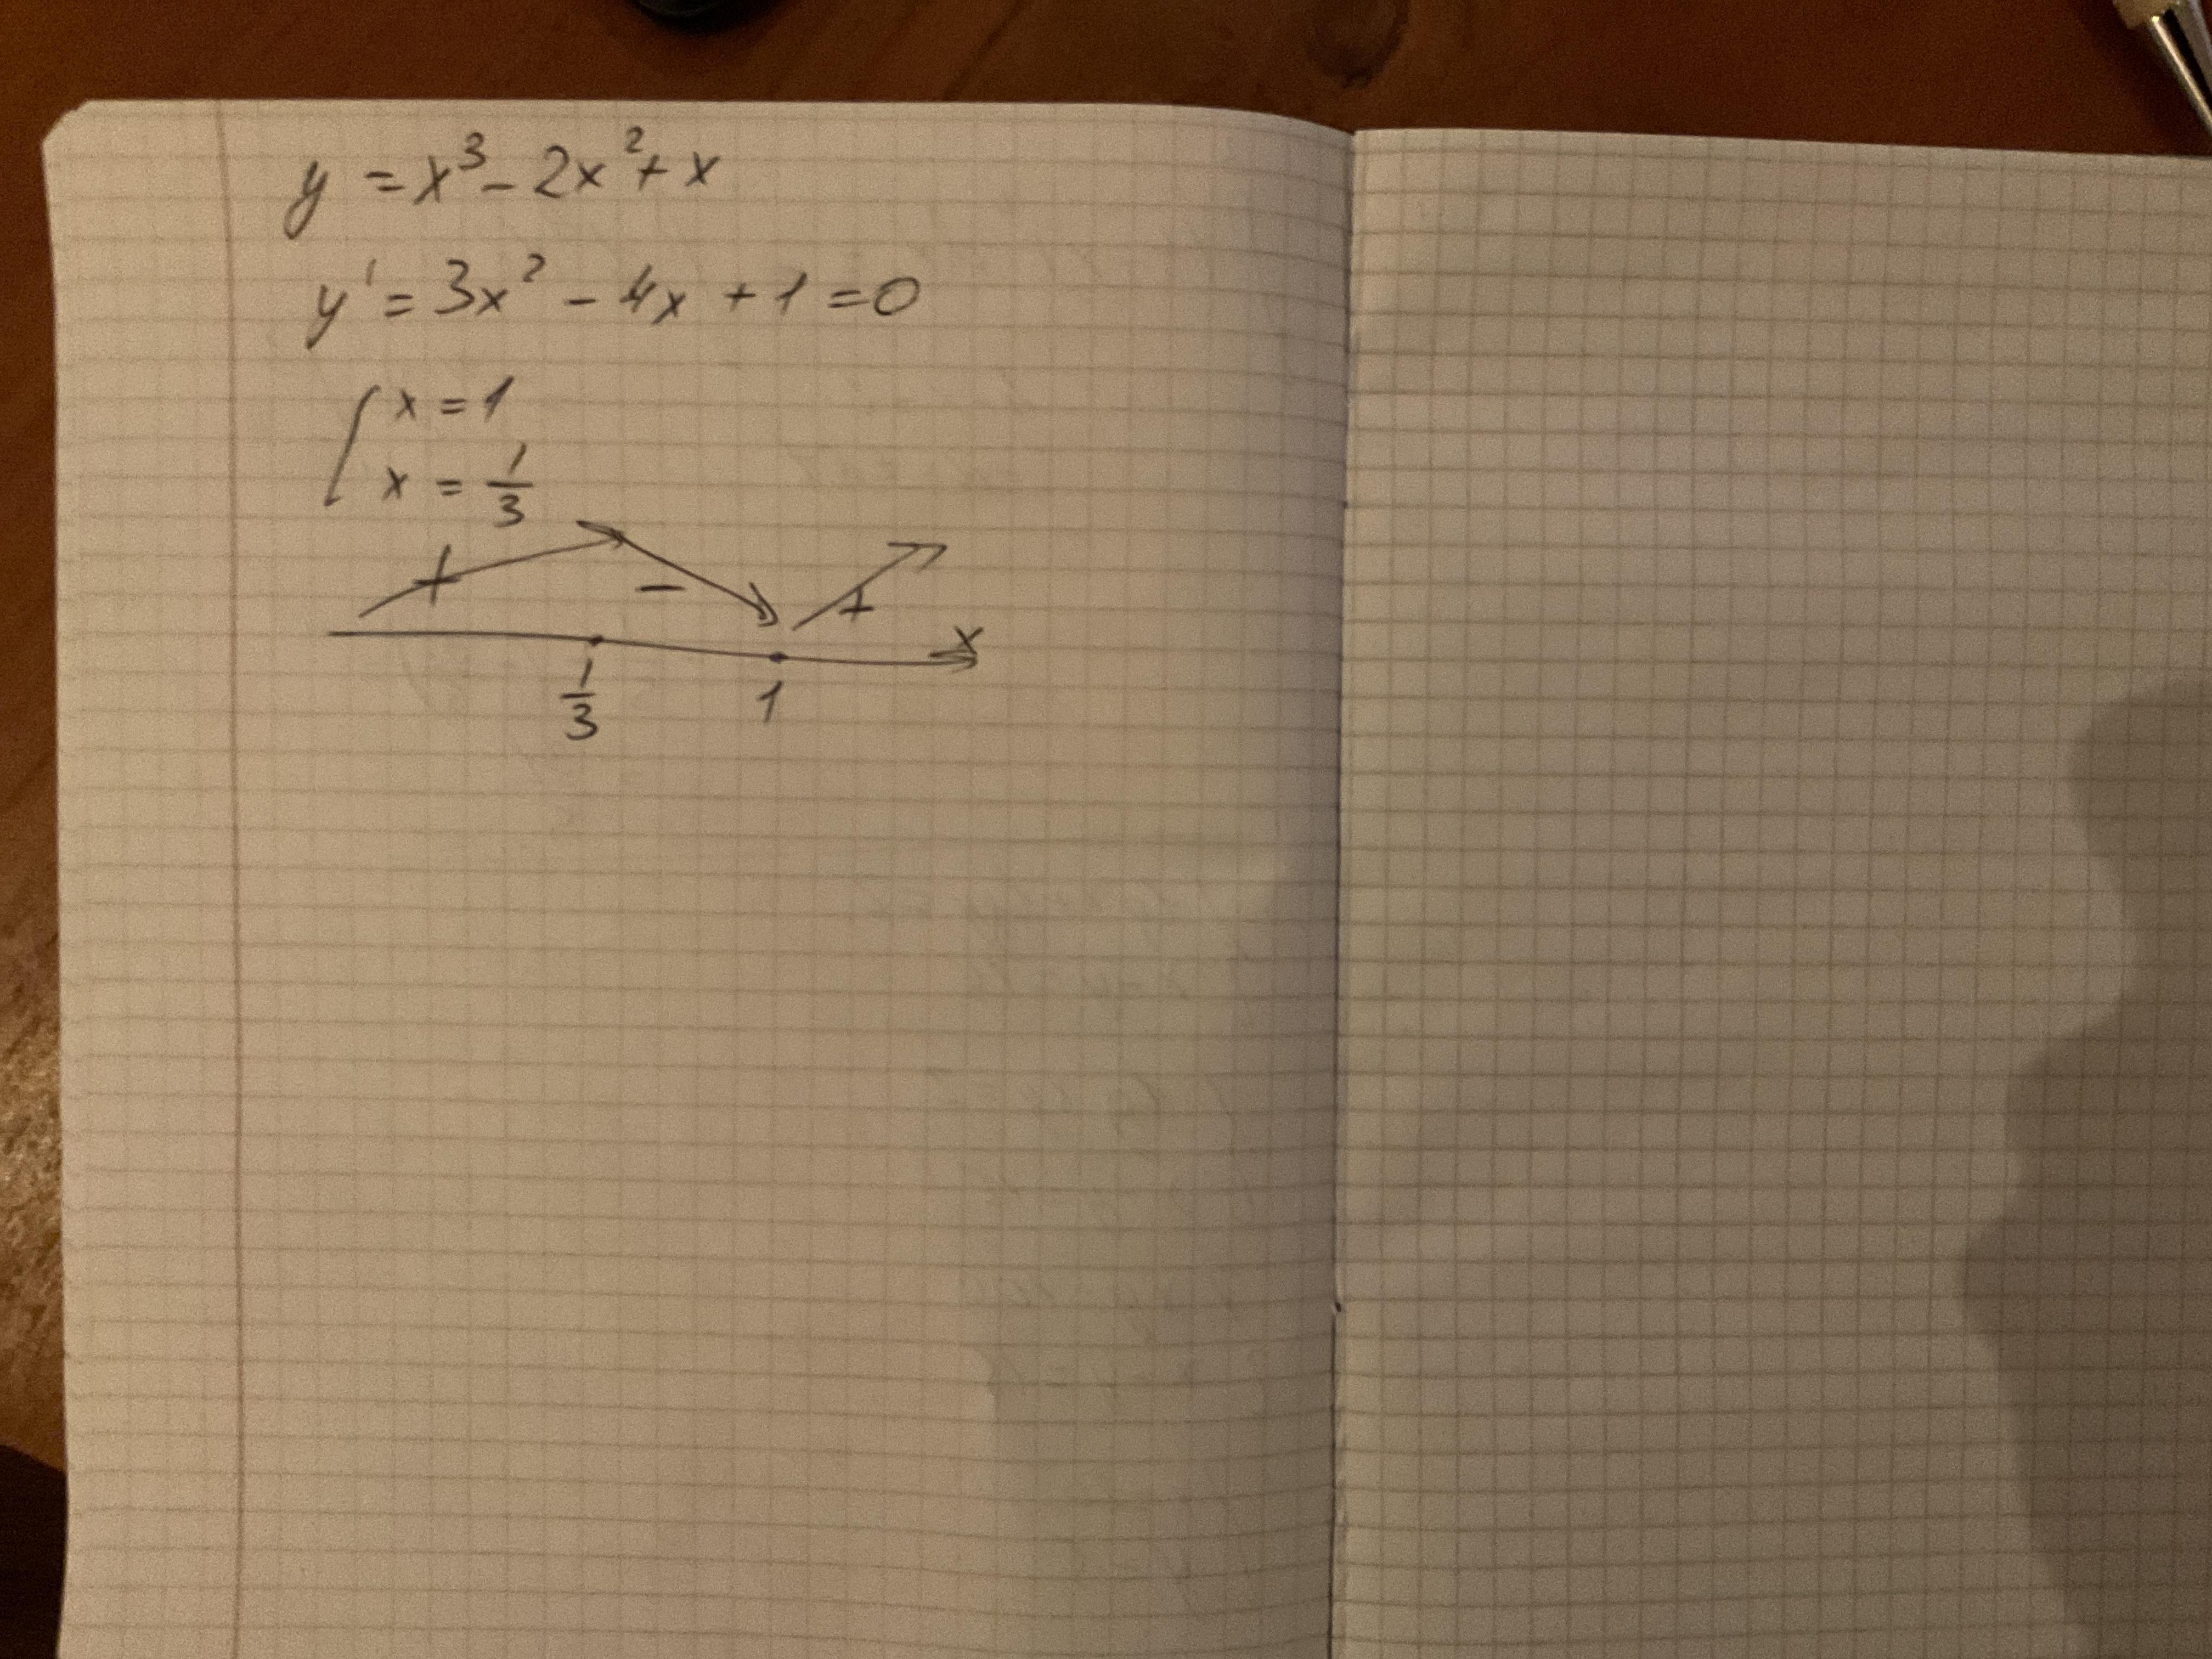 y = x³ - 2x² + x
y' = 3x² - 4x + 1 = 0
[ x = 1
x = 1/3
+ - +
x
1/3 1